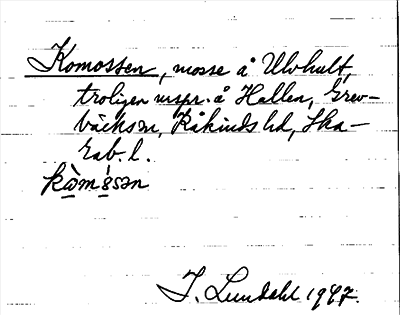 Komossen, mosse å Ulvhult,
troligen urspr. å Hallen, Grev-
bäcks sn, Kåkinds hd, Ska-
rab. l.
kò̀mɔ́sən
I. Lundahl 1947.